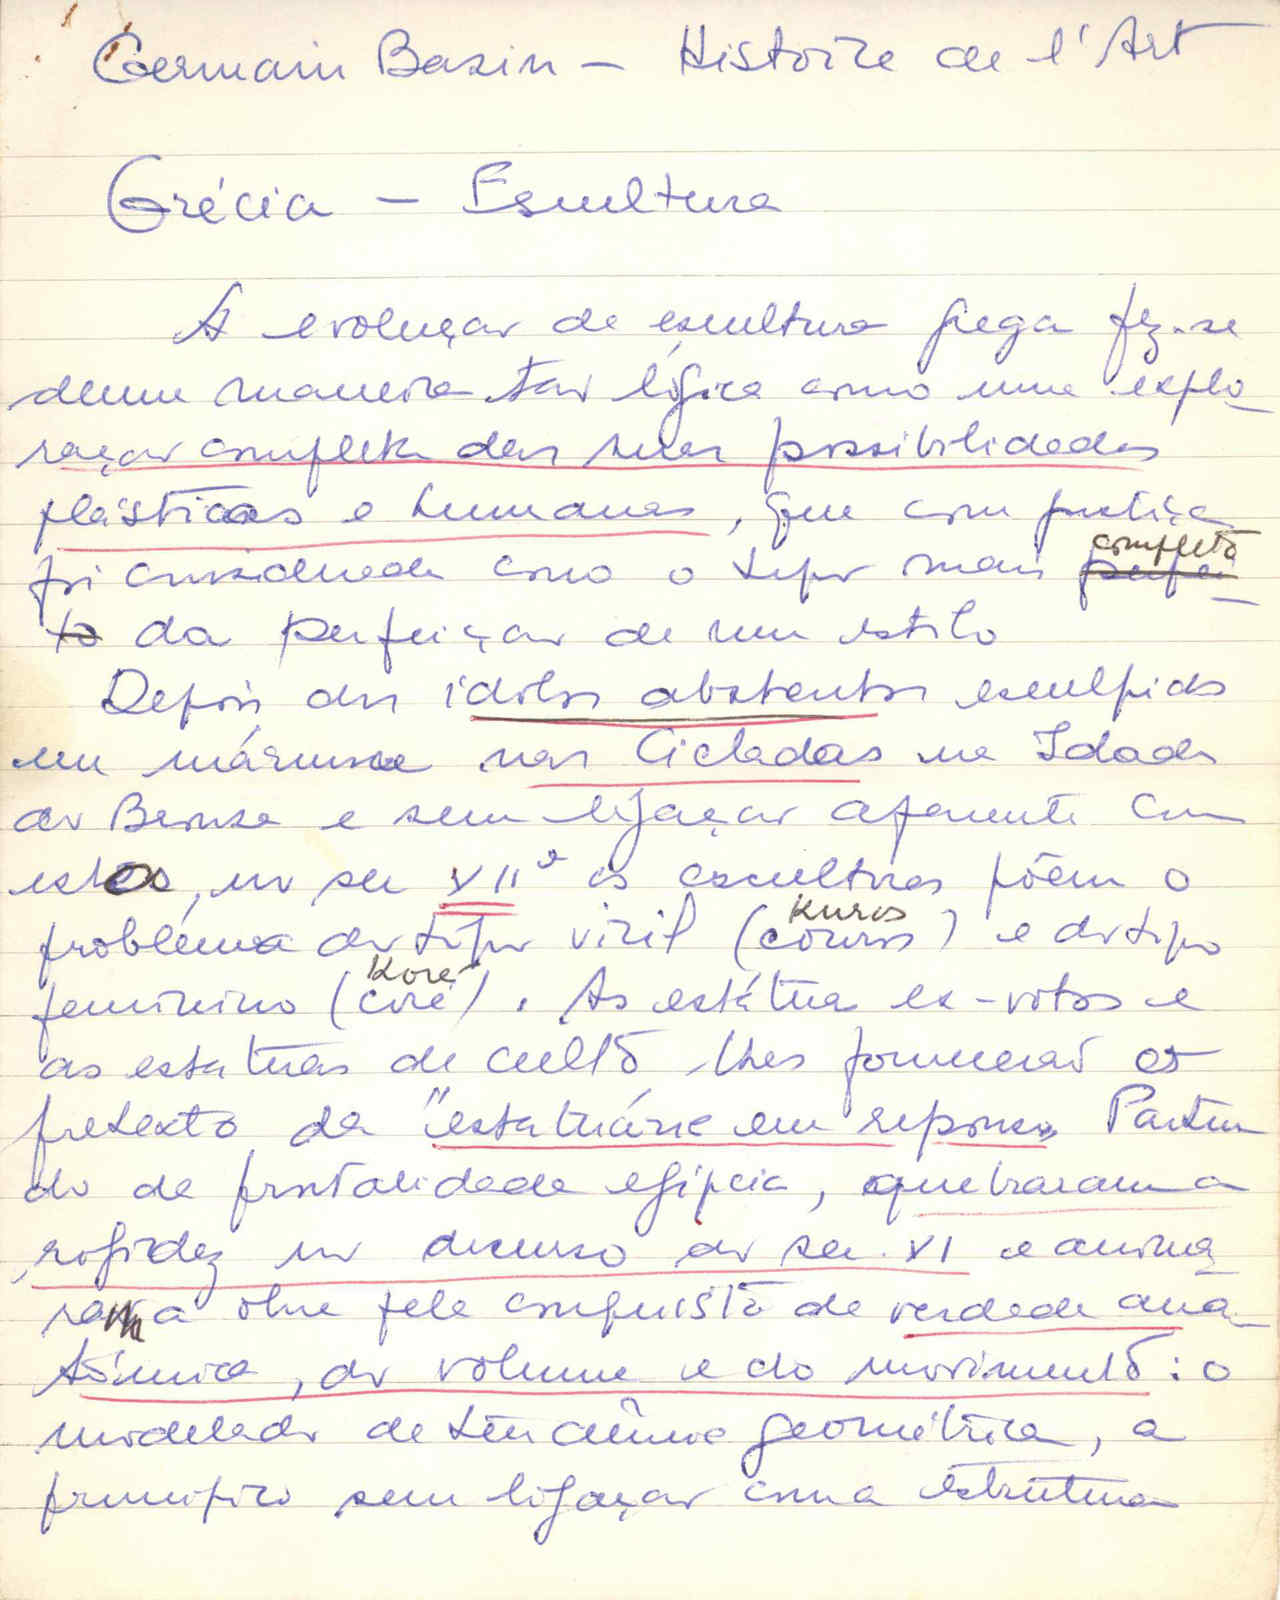 Germain Bazin – Histoire de l'Art
Grécia – Escultura
A evolução da escultura grega fez-se
duma maneira tão lógica como uma explo-
ração completa das suas possibilidades
plásticas e humanas, que com justiça
foi considerada como o tipo mais perfei- completo
to da perfeição de um estilo
Depois dos ídolos abstratos esculpidos
em mármore nas Cicladas na Idade
do Bronze e sem ligação aparente com
estes, no sec VIIº os escultores põem o
problema do tipo viril (couros) kuros e do tipo
feminino (coré) Koré. As estátuas ex-votos e
as estátuas de culto lhes forneceram os
pretexto da "estatuária em repouso" Partin
do da frontalidade egípcia, quebraram a
rigidez no decurso do sec. VI e anima
ram a obra pela conquista da verdade ana-
tómica, do volume e do movimento: o
modelado de tendência geométrica, a
princípio sem ligação com a estrutura